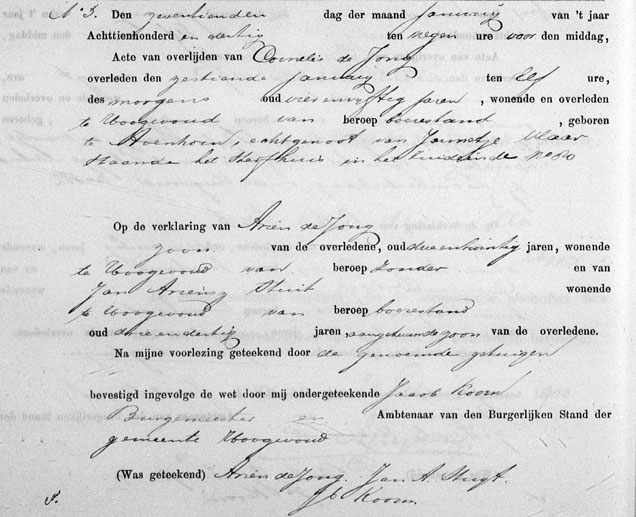 No 3. Den zeventienden dag der maand January van 't jaar
Achttienhonderd en dertig ten negen ure voor den middag,
Acte van overlijden van Cornelis de Jong
overleden den zestiende January ten elf ure,
des morgens oud vier en vijftig jaren, wonende en overleden
te Hoogwoud van beroep boerestand, geboren
te Avenhorn, echtgenoot van Jannetje Vlaar
Staande het sterfhuis in het no 80
Op de verklaring van Ariën de Jong
zoon van de overledene, oud drie en twintig jaren, wonende
te Hoogwoud van beroep zonder en van
Jan Ariensz Stuit wonende
te Hoogwoud van beroep boerestand
oud drie en dertig jaren, aangehuwde zoon van de overledene.
Na mijne voorlezing geteekend door de genoemde getuigen
bevestigd ingevolge de wet door mij ondergeteekende Jacob Koorn
Burgemeester en Ambtenaar van den Burgerlijken Stand der
gemeente Hoogwoud
(Was geteekend) Ariën de Jong. Jan A.
Jb Koorn